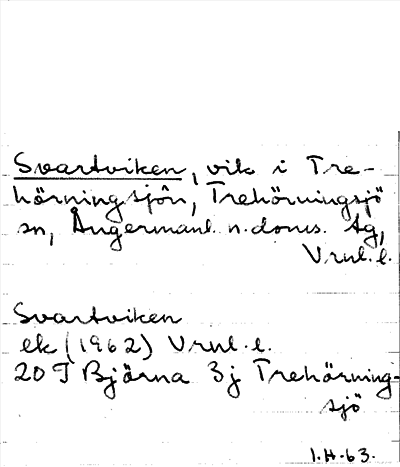 Svartviken, vik i Tre-
hörningsjön, Trehörningsjö
sn, Ångermanl. n. doms. Ag,
Vrnl. l.
Svartviken
ek (1962) Vrnl. l.
20 I Björna 3j Trehörning-
sjö
I.H-63.